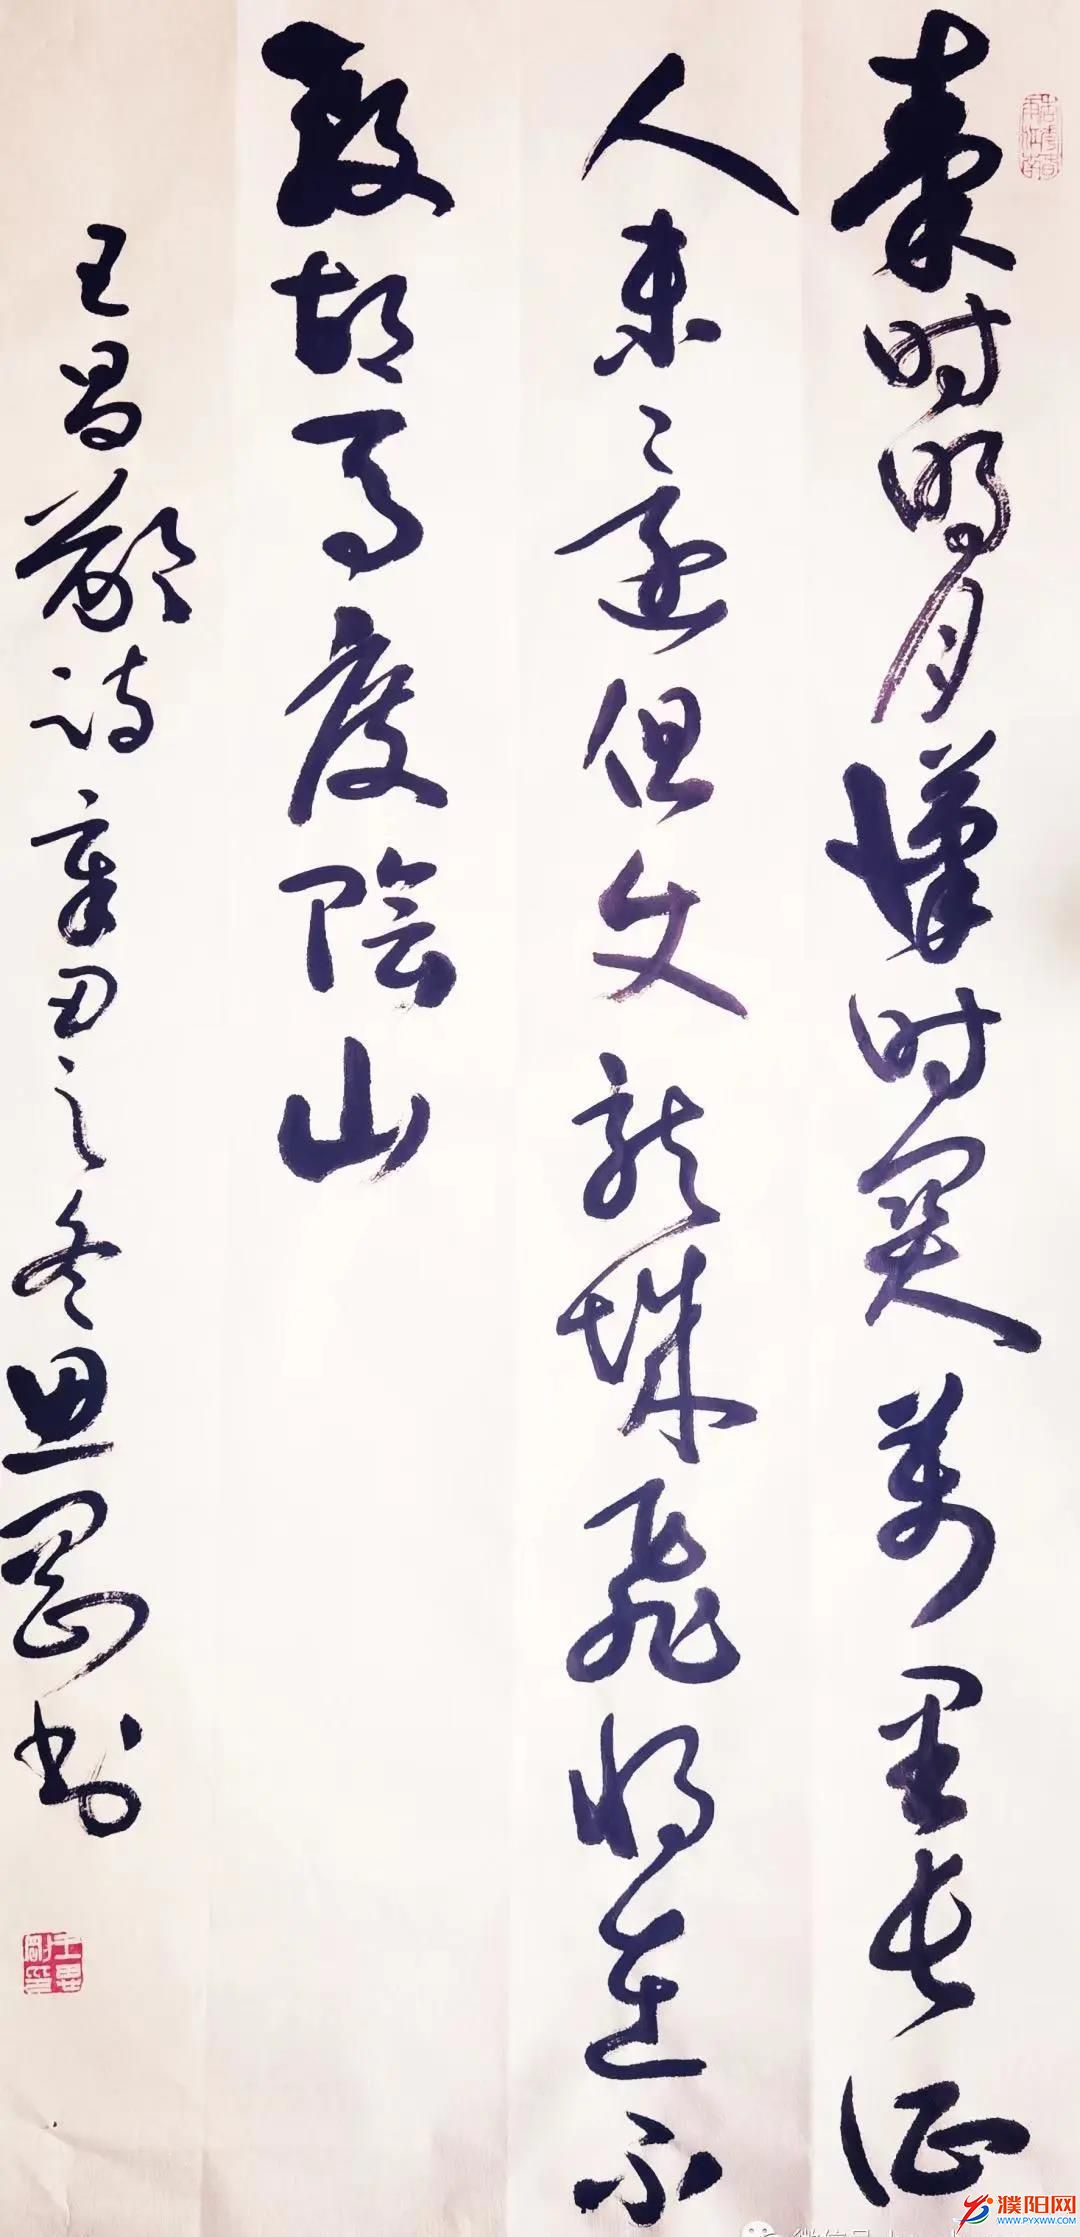 秦时明月漢时関萬里长征
人未還但使龙城飛将在不
教胡马度陰山
王昌龄诗辛丑之冬书
濮阳网
WWW.PYXWW.COM